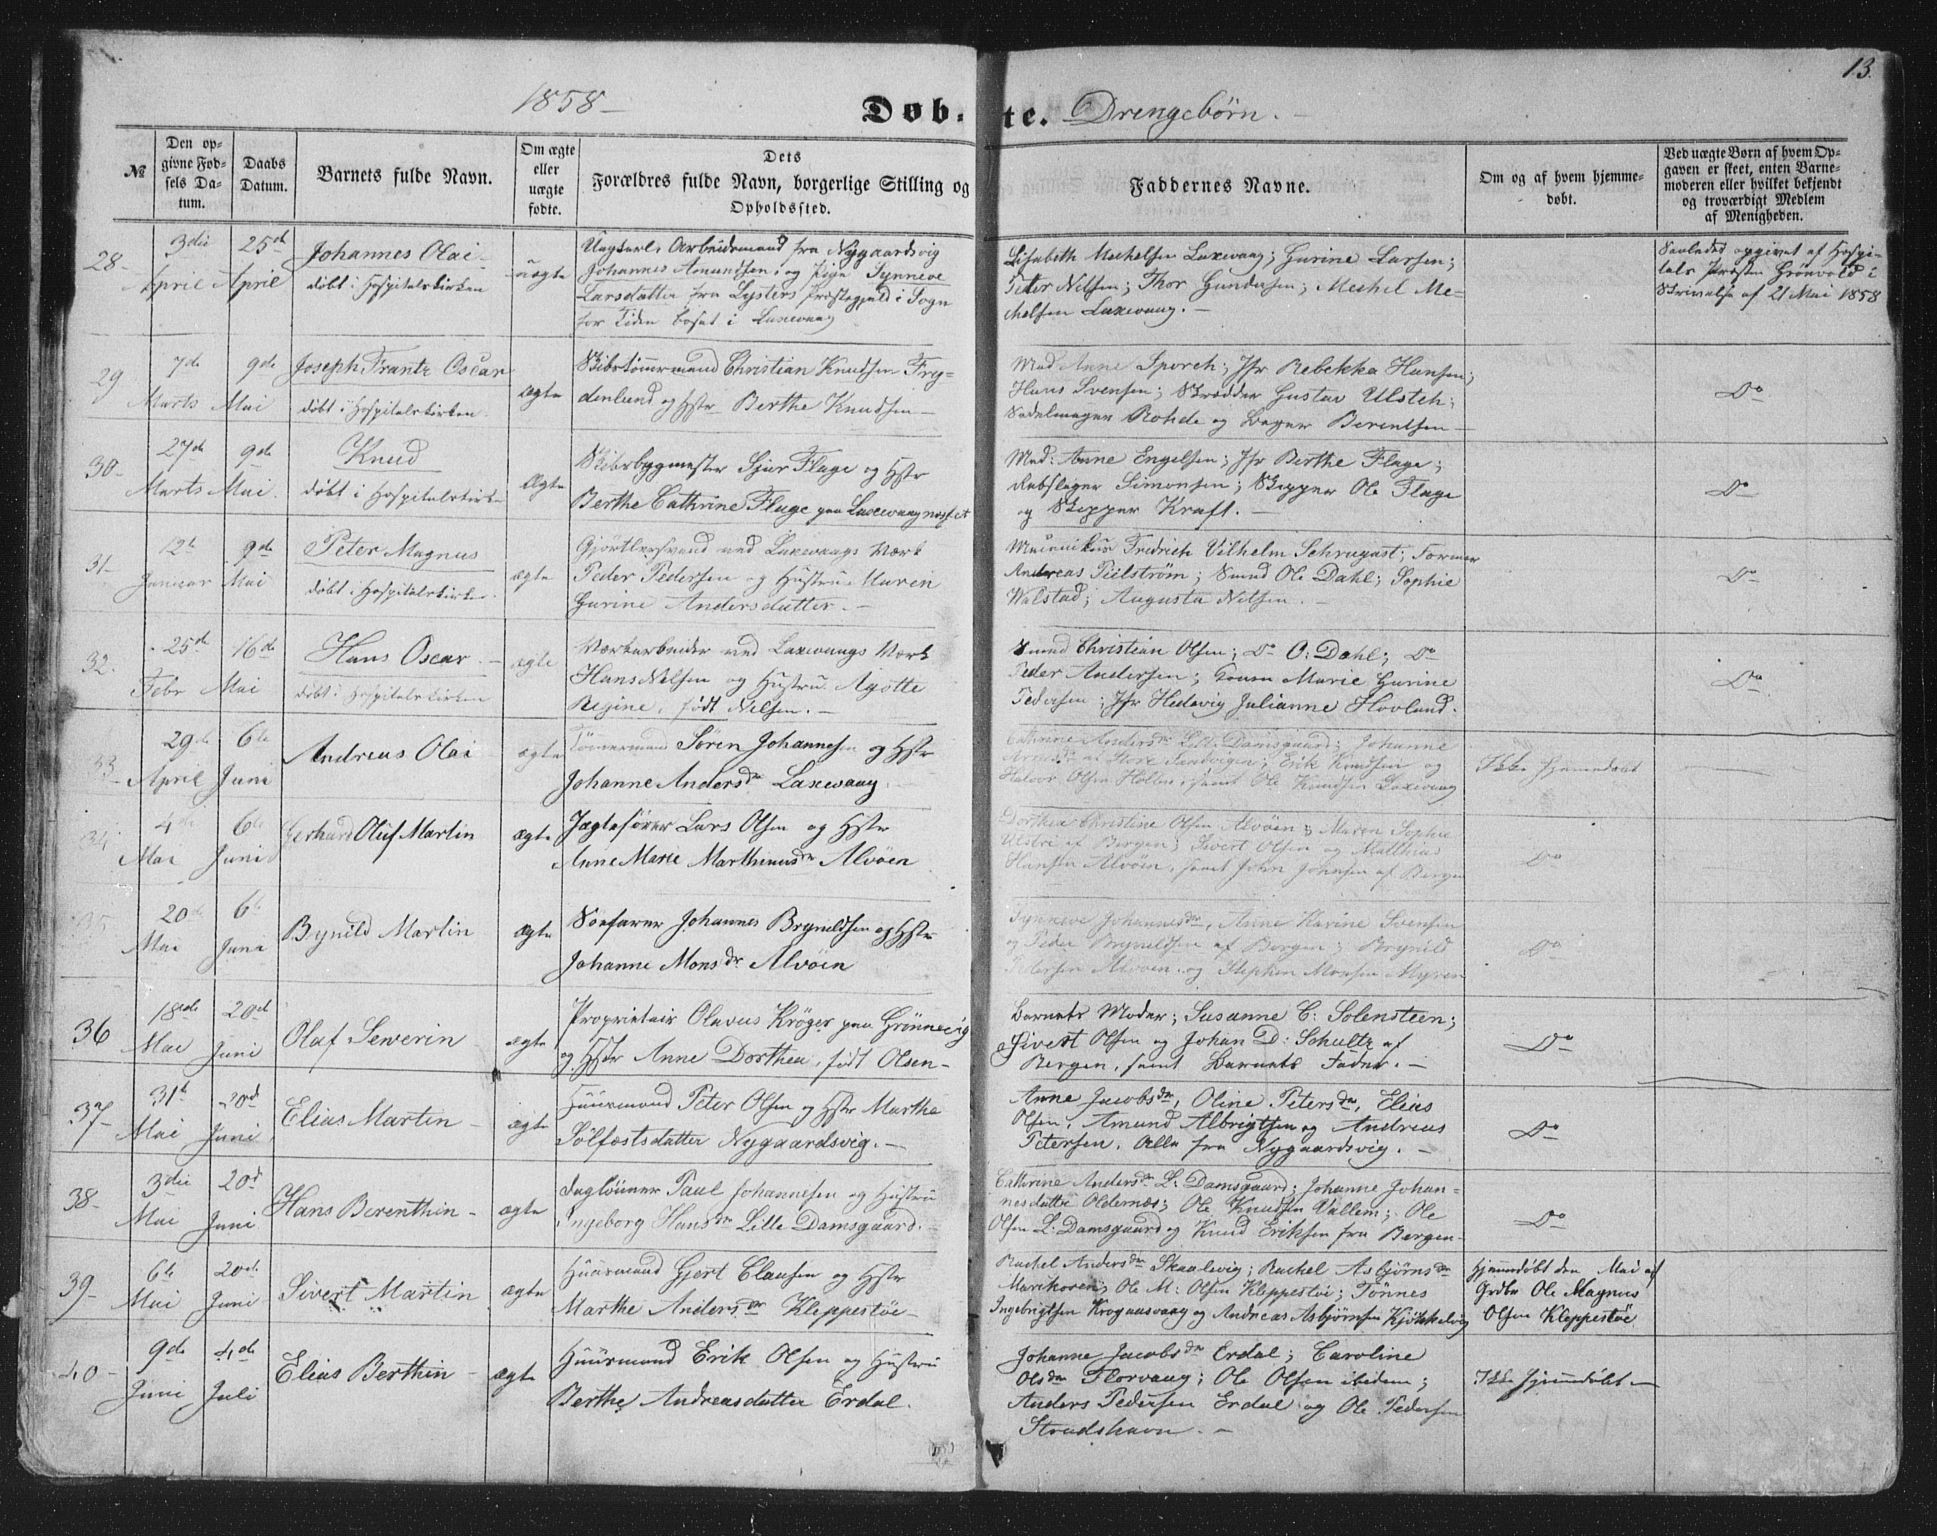 13.
1858 –
Døb-te. Drengebørn. –
№
Den op-
givne Fød-
sels Da-
tum.
Daabs
Datum.
Barnets fulde Navn.
Om ægte
eller
uægte
fødte.
Dets
Forældres fulde Navn, borgerlige Stilling og
Opholdssted.
Faddernes Navne.
Om og af hvem hjemme-
døbt.
Ved uægte Børn af hvem Op-
gaven er skeet, enten Barne-
moderen eller hvilket bekjendt
og troværdigt Medlem
af Menigheden.
28–
3die
April
25de
April
Johannes Olai –
døbt i Hospitalskirken
uægte
Ungkarl, Arbeidsmand fra Nygaardsvig
Johannes Amundsen, og Pige Synneve
Larsdatter fra Lysters Præstegjeld i Sogn
for Tiden bosat i Laxevaag
Lisabeth Mechelsen Laxevaag; Gurine Larsen;
Peter Nilsen; Thor Gundersen; Mechel Me-
chelsen Laxevaag. –
Saaledes opgivet af Hospi-
tals Præsten Grönvold i
Skrivelse af 21 Mai 1858
29
7de
Marts
9de
Mai
Joseph Frantz Oscar
døbt i Hospitalskirken.
ægte
Skibstømmermand Christian Knudsen Fry-
denlund og Hstr Berthe Knudsen –
Mad Anne Sporch; Jfr Rebekka Hansen;
Hans Svensen; Skrædder Gustav Ulstch;
Sadelmager Rohde og Bager Berentsen –
Do
30–
27de
Marts
9de
Mai.
Knud
døbt i Hospitalskirken
Ægte
Skibsbygmester Sjur Flage og Hstr
Berthe Cathrine Flage paa Laxevaagnesset
Mad: Anne Engelsen; Jfr Berthe Flage;
Rebslager Simonsen; Skipper Ole Flage
og Skipper Kraft. –
Do
31–
12te
Januar
9de
Mai
Peter Magnus
døbt i Hospitalskirken.
ægte
Gjørtlersvend ved Laxevaags Værk
Peder Pedersen og Hustru Maren
Gurine Andersdatter. –
Fredrich Vilhelm Schrugast; Former
Andreas Pillstrøm; Smed Ole Dahl; Sophie
Walstad; Augusta Nilsen. –
Do
32.
25de
Febr
16de
Mai
Hans Oscar. –
døbt i Hospitalskirken
ægte
Værkarbeider ved Laxevaags Værk
Hans Nilsen og Hustru Agotte
Regine, født Nilsen. –
Smed Christian Olsen; Do O: Dahl; Do
Peder Andersen; Konen Marie Gurine
Pedersen; Jfr Hedevig Julianne Hovland.
Do
33–
29de
April
6te
Juni
Andreas Olai
ægte
Tømmermand Søren Johannesen og Hstr
Johanne Andersdr Laxevaag.
Cathrine Andersdr Lille Damsgaard; Johanne
Store Sandvigen; Erik Knudsen og
Halvor Olsen, samt Ole Knudsen Laxevaag
Ikke hjemmedøbt
34
4de
Mai
6te
Juni
Gerhard Oluf Martin
ægte
Jægtefører Lars Olsen og Hstr
Anne Marie Marthinusdr Alvøen
Dorthea Christine Olsen Alvøen; Maren Sophie
af Bergen; Sivert Olsen og Matthias
Hansen Alvøen, samt John Johnsen af Bergen
Do
35
20de
Mai
6te
Juni
Bynild Martin
ægte
Søefarer Johannes Brynildsen og Hstr
Johanne Monsdr Alvøen
Synneve Johannesdr, Anne Karine Svensen
og Peder Brynildsen af Bergen; Brynild
Pedersen Alvøen og Stephen Monsen Myren
Do
36
18de
Mai
20de
Juni
Olaf Sewerin
ægte
Proprietair Olavus Krøger paa Grønnevig
og Hstr Anne Dorthea, født Olsen –
Barnets Moder; Susanne C: Solensteen;
Sivert Olsen og Johan D: Schultz af
Bergen, samt Barnets Fader. –
Do
37–
31te
Mai
20de
Juni
Elias Martin –
ægte
Huusmand Peter Olsen og Hstr Marthe
Sølfæstsdatter Nygaardsvig. –
Anne Jacobsdr, Oline Petersdr, Elias
Olsen, Amund Albrigtsen og Andreas
Petersen. Alle fra Nygaardsvig. –
Do
38–
3die
Mai
20de
Juni
Hans Berenthin –
ægte
Dagløner Paul Johannesen og Hustru
Ingeborg Hansdr Lille Damsgaard.
Cathrine Andersdr L: Damsgaard; Johanne Johan-
nesdatter Oldernæs; Ole Knudsen Vallem; Ole
Olsen L: Damsgaard og Knud Eriksen fra Bergen –
Do
39–
6te
Mai
20de
Juni
Sivert Martin
ægte
Huusmand Gjert Clausen og Hstr
Marthe Andersdr Kleppestøe –
Rachel Andersdr Skaalevig; Rachel Asbjørnsdr
Marikoven; Ole M: Olsen Kleppestøe; Tönnes
Ingebrigtsen Krogaasvaag og Andreas Asbjørnsen Kjøkkelvig
Hjemmedøbt den Mai af
Grdbr Ole Magnus
Olsen Kleppestøe
40–
9de
Juni
4de
Juli
Elias Berthin –
ægte
Huusmand Erik Olsen og Hustru
Berthe Andreasdatter Erdal.
Johanne Jacobsdr Erdal; Caroline
Olsdr Florvaag; Ole Olsen ibidem;
Anders Pedersen Erdal og Ole Pedersen
Strudshavn. –
Ikke hjemmedøbt –